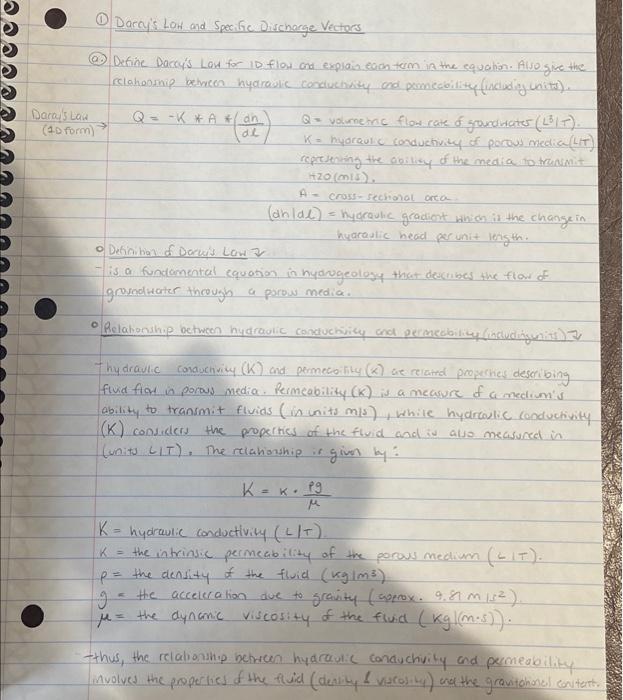 ① Darcy's Law and Specific Discharge Vectors
ⓐ Define Darcy's Law for 1D flow and explain each term in the equation. Also give the
relationship between hydraulic conductivity and permeability (including units).
Darcy's Law
(1D form) →
Q = -K * A * (dh/dl)
Q = volumetric flow rate of groundwater (L³/T).
K = hydraulic conductivity of porous media (L/T)
representing the ability of the media to transmit
H2O (m/s).
A = cross-sectional area.
(dh/dl) = hydraulic gradient which is the change in
hydraulic head per unit length.
o Definition of Darcy's Law ↴
- is a fundamental equation in hydrogeology that describes the flow of
groundwater through a porous media.
o Relationship between hydraulic conductivity and permeability (including units) ↴
- hydraulic conductivity (K) and permeability (κ) are related properties describing
fluid flow in porous media. Permeability (κ) is a measure of a medium's
ability to transmit fluids (in units m/s), while hydraulic conductivity
(K) considers the properties of the fluid and is also measured in
(units L/T). The relationship is given by:
K = κ · ρg/μ
K = hydraulic conductivity (L/T).
κ = the intrinsic permeability of the porous medium (L/T).
ρ = the density of the fluid (kg/m³)
g = the acceleration due to gravity (approx. 9.81 m/s²).
μ = the dynamic viscosity of the fluid (kg/(m·s)).
- thus, the relationship between hydraulic conductivity and permeability
involves the properties of the fluid (density & viscosity) and the gravitational constant.